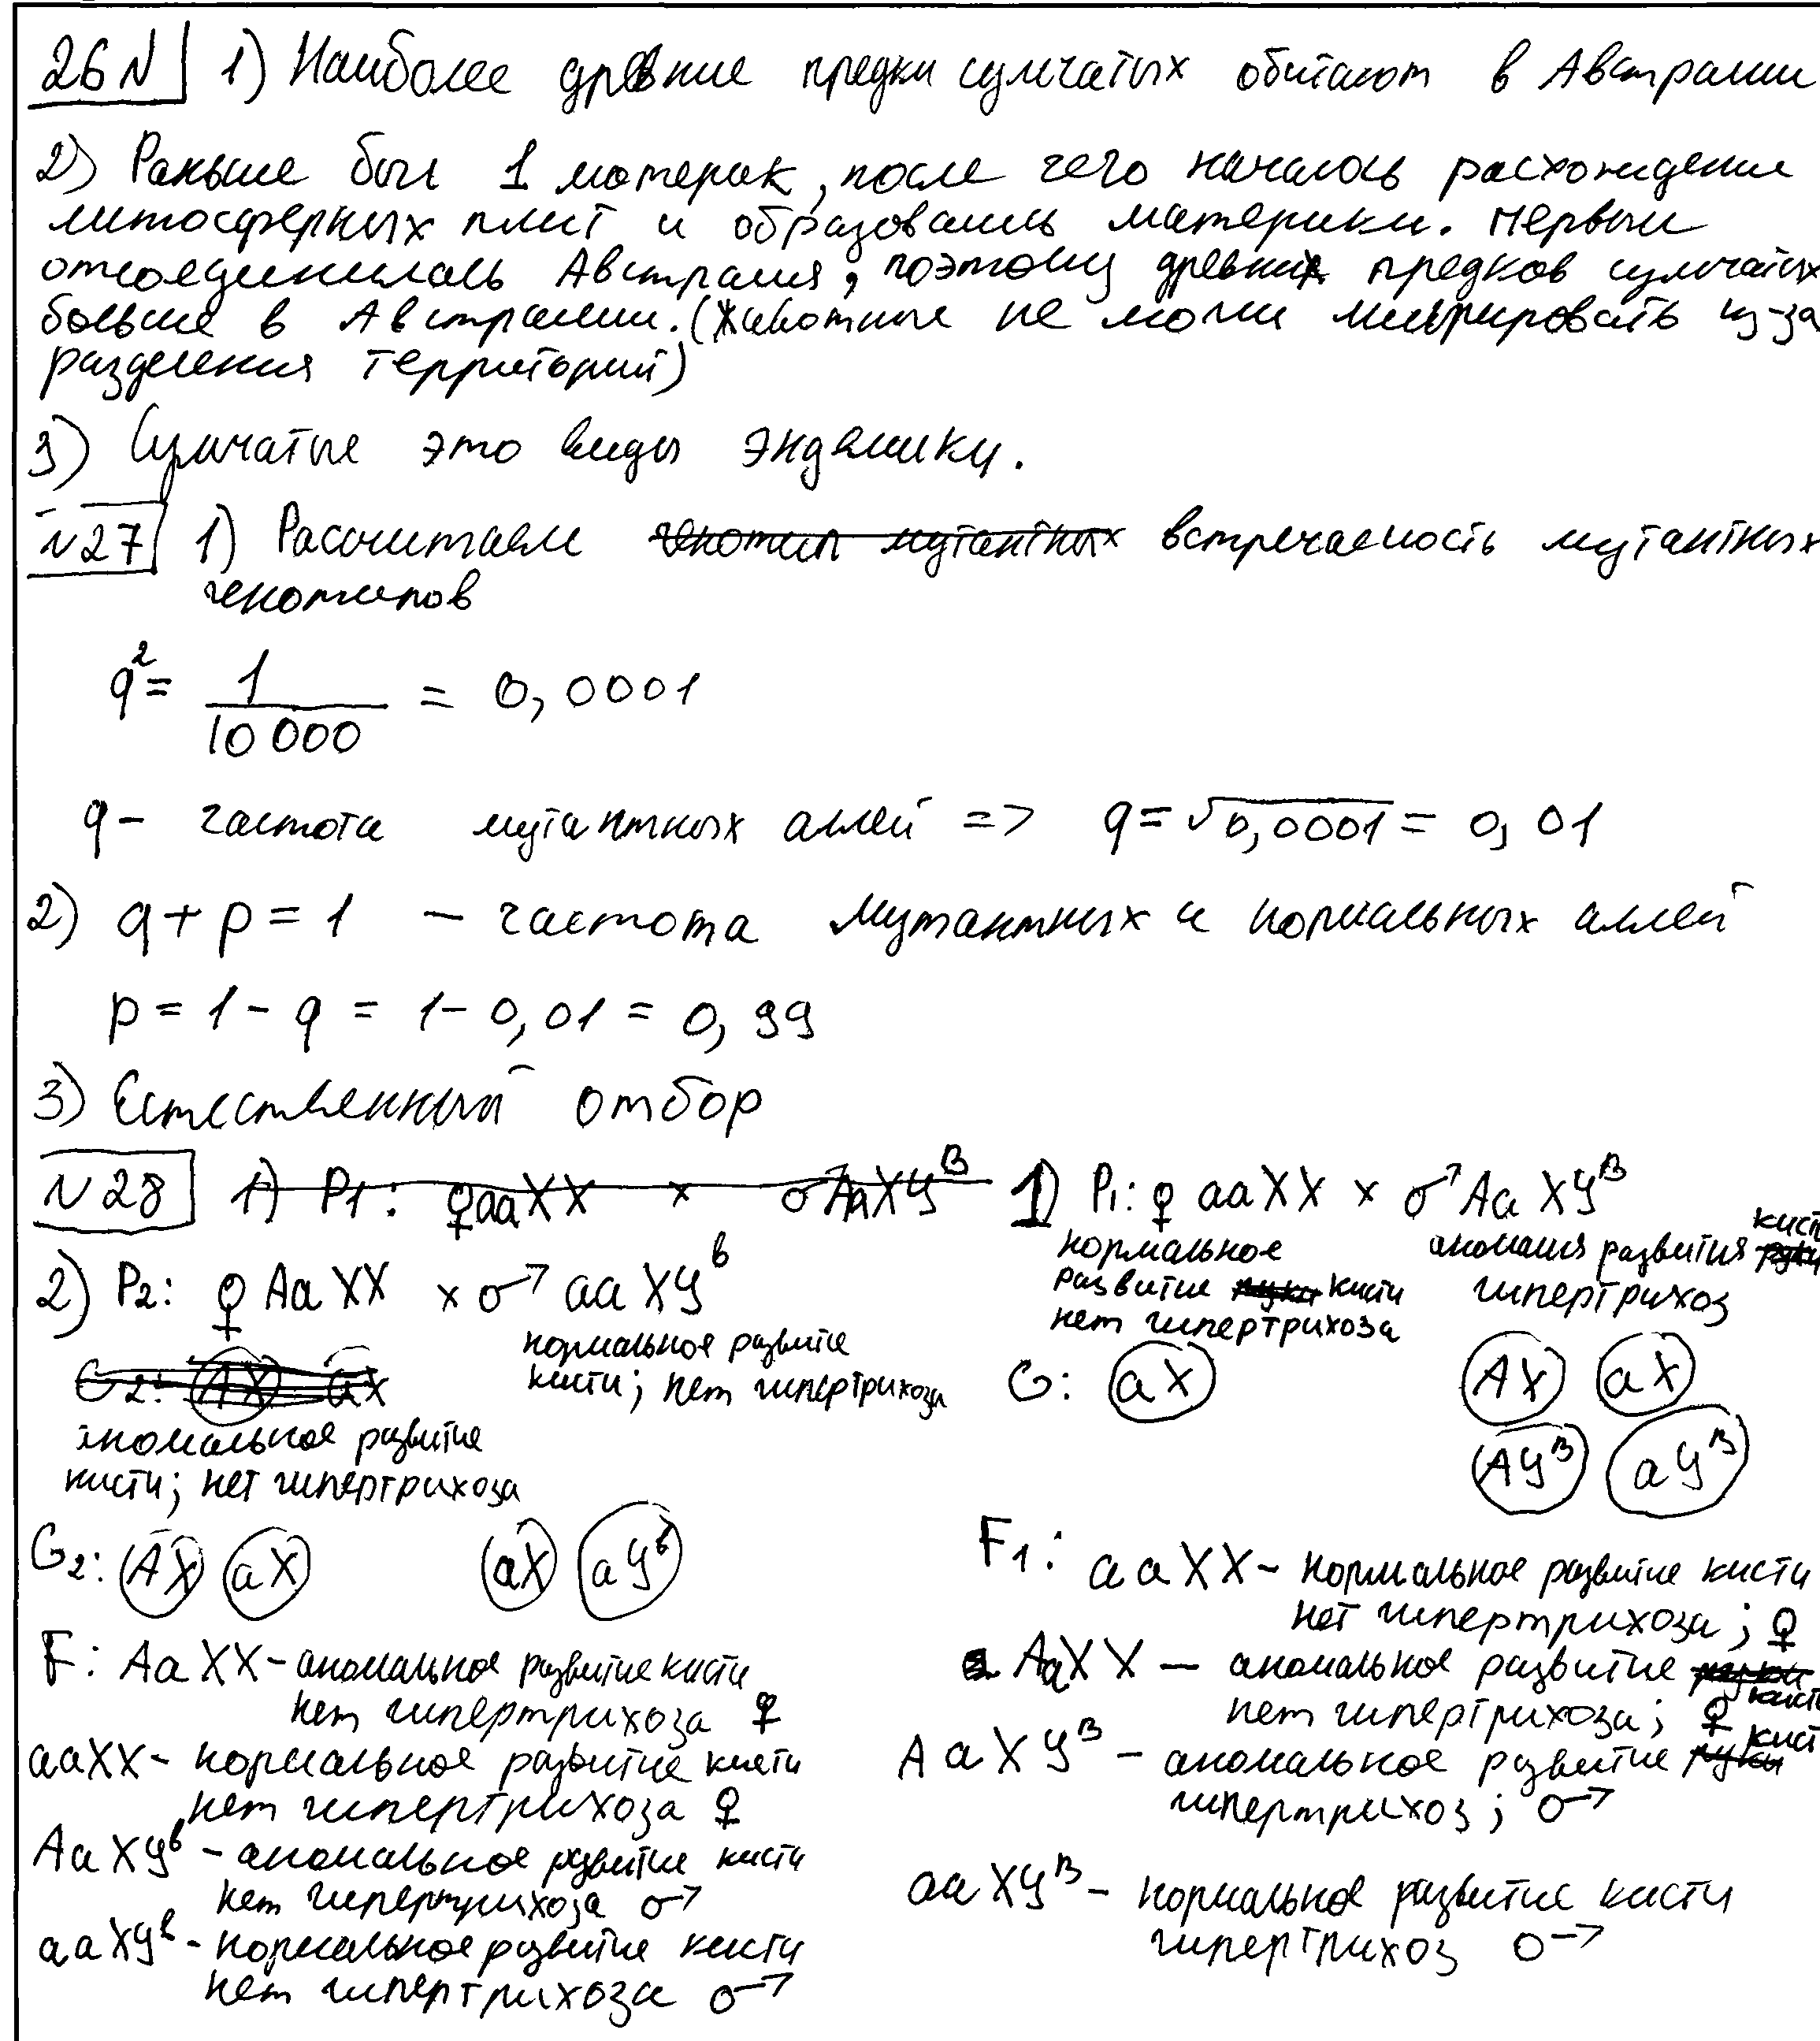 26 N 1) Наиболее древние предки сумчатых обитают в Австралии
2) Раньше был 1 материк, после чего началось расхождение
литосферных плит и образовались материки. Первый
отсоединилась Австралия, поэтому древних предков сумчатых
больше в Австралии. (Животные не могли мигрировать из-за
разделения территорий)
3) Сумчатые это виды эндемики.
N27 1) Рассчитаем генотип мутантных встречаемость мутантных
генотипов
q² = 1/10 000 = 0,0001
q - частота мутантных аллей => q = √0,0001 = 0,01
2) q + p = 1 — частота мутантных и нормальных аллей
p = 1 - q = 1 - 0,01 = 0,99
3) Естественный отбор
N28 1) P1: ♀ aaXX × ♂ AaXY^B
2) P2: ♀ Aa XX × ♂ aa XY^b
нормальное развитие
кисти; нет гипертрихоза
G2: AX aX
аномальное развитие
кисти; нет гипертрихоза
G2: AX aX aX aY^b
F: Aa XX - аномальное развитие кисти
нет гипертрихоза ♀
aaXX - нормальное развитие кисти
нет гипертрихоза ♀
Aa XY^b - аномальное развитие кисти
нет гипертрихоза ♂
aa XY^b - нормальное развитие кисти
нет гипертрихоза ♂
1) P1: ♀ aa XX × ♂ Aa XY^B
нормальное
развитие руки кисти
нет гипертрихоза
аномалия развития руки кисти
гипертрихоз
G: aX AX aX
AY^B aY^B
F1: aa XX - нормальное развитие кисти
нет гипертрихоза; ♀
AaXX — аномальное развитие кисти
нет гипертрихоза; ♀
Aa XY^B - аномальное развитие руки кисти
гипертрихоз; ♂
aa XY^B - нормальное развитие кисти
гипертрихоз ♂